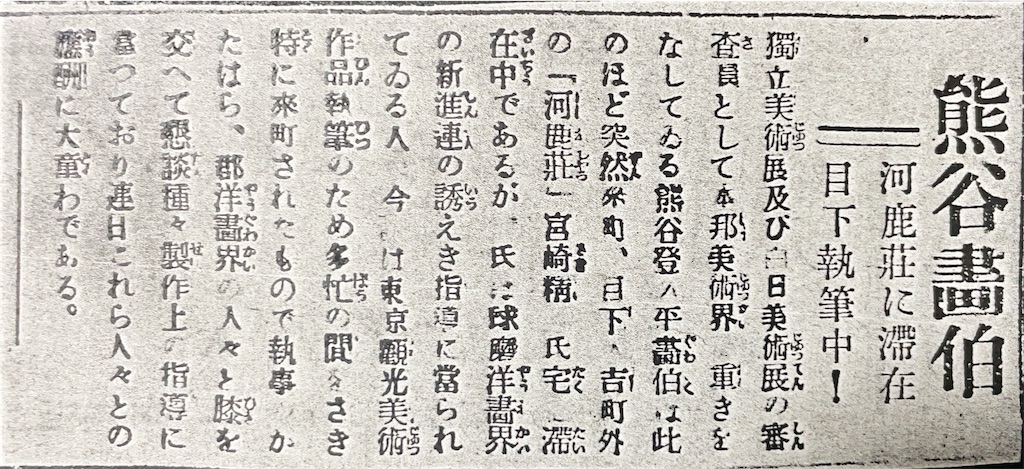 熊谷畫伯
河鹿莊に滯在
目下執筆中!
獨立美術展及び白日美術展の審
査員として本邦美術界 重きを
なしてゐる熊谷登 平畫伯は此
のほど突然來町、目下 吉町外
の「河鹿莊」宮崎精 氏宅 滯
在中であるが 氏は球磨洋畫界
の新進連の誘えき指導に當られ
てゐる人 今 は東京觀光美術
作品執筆のため多忙の間をさき
特に來町されたもので執事 か
たはら、郡洋畫界の人々と膝を
交へて懇談種々製作上の指導に
當つており連日これら人々との
應酬に大童わである。